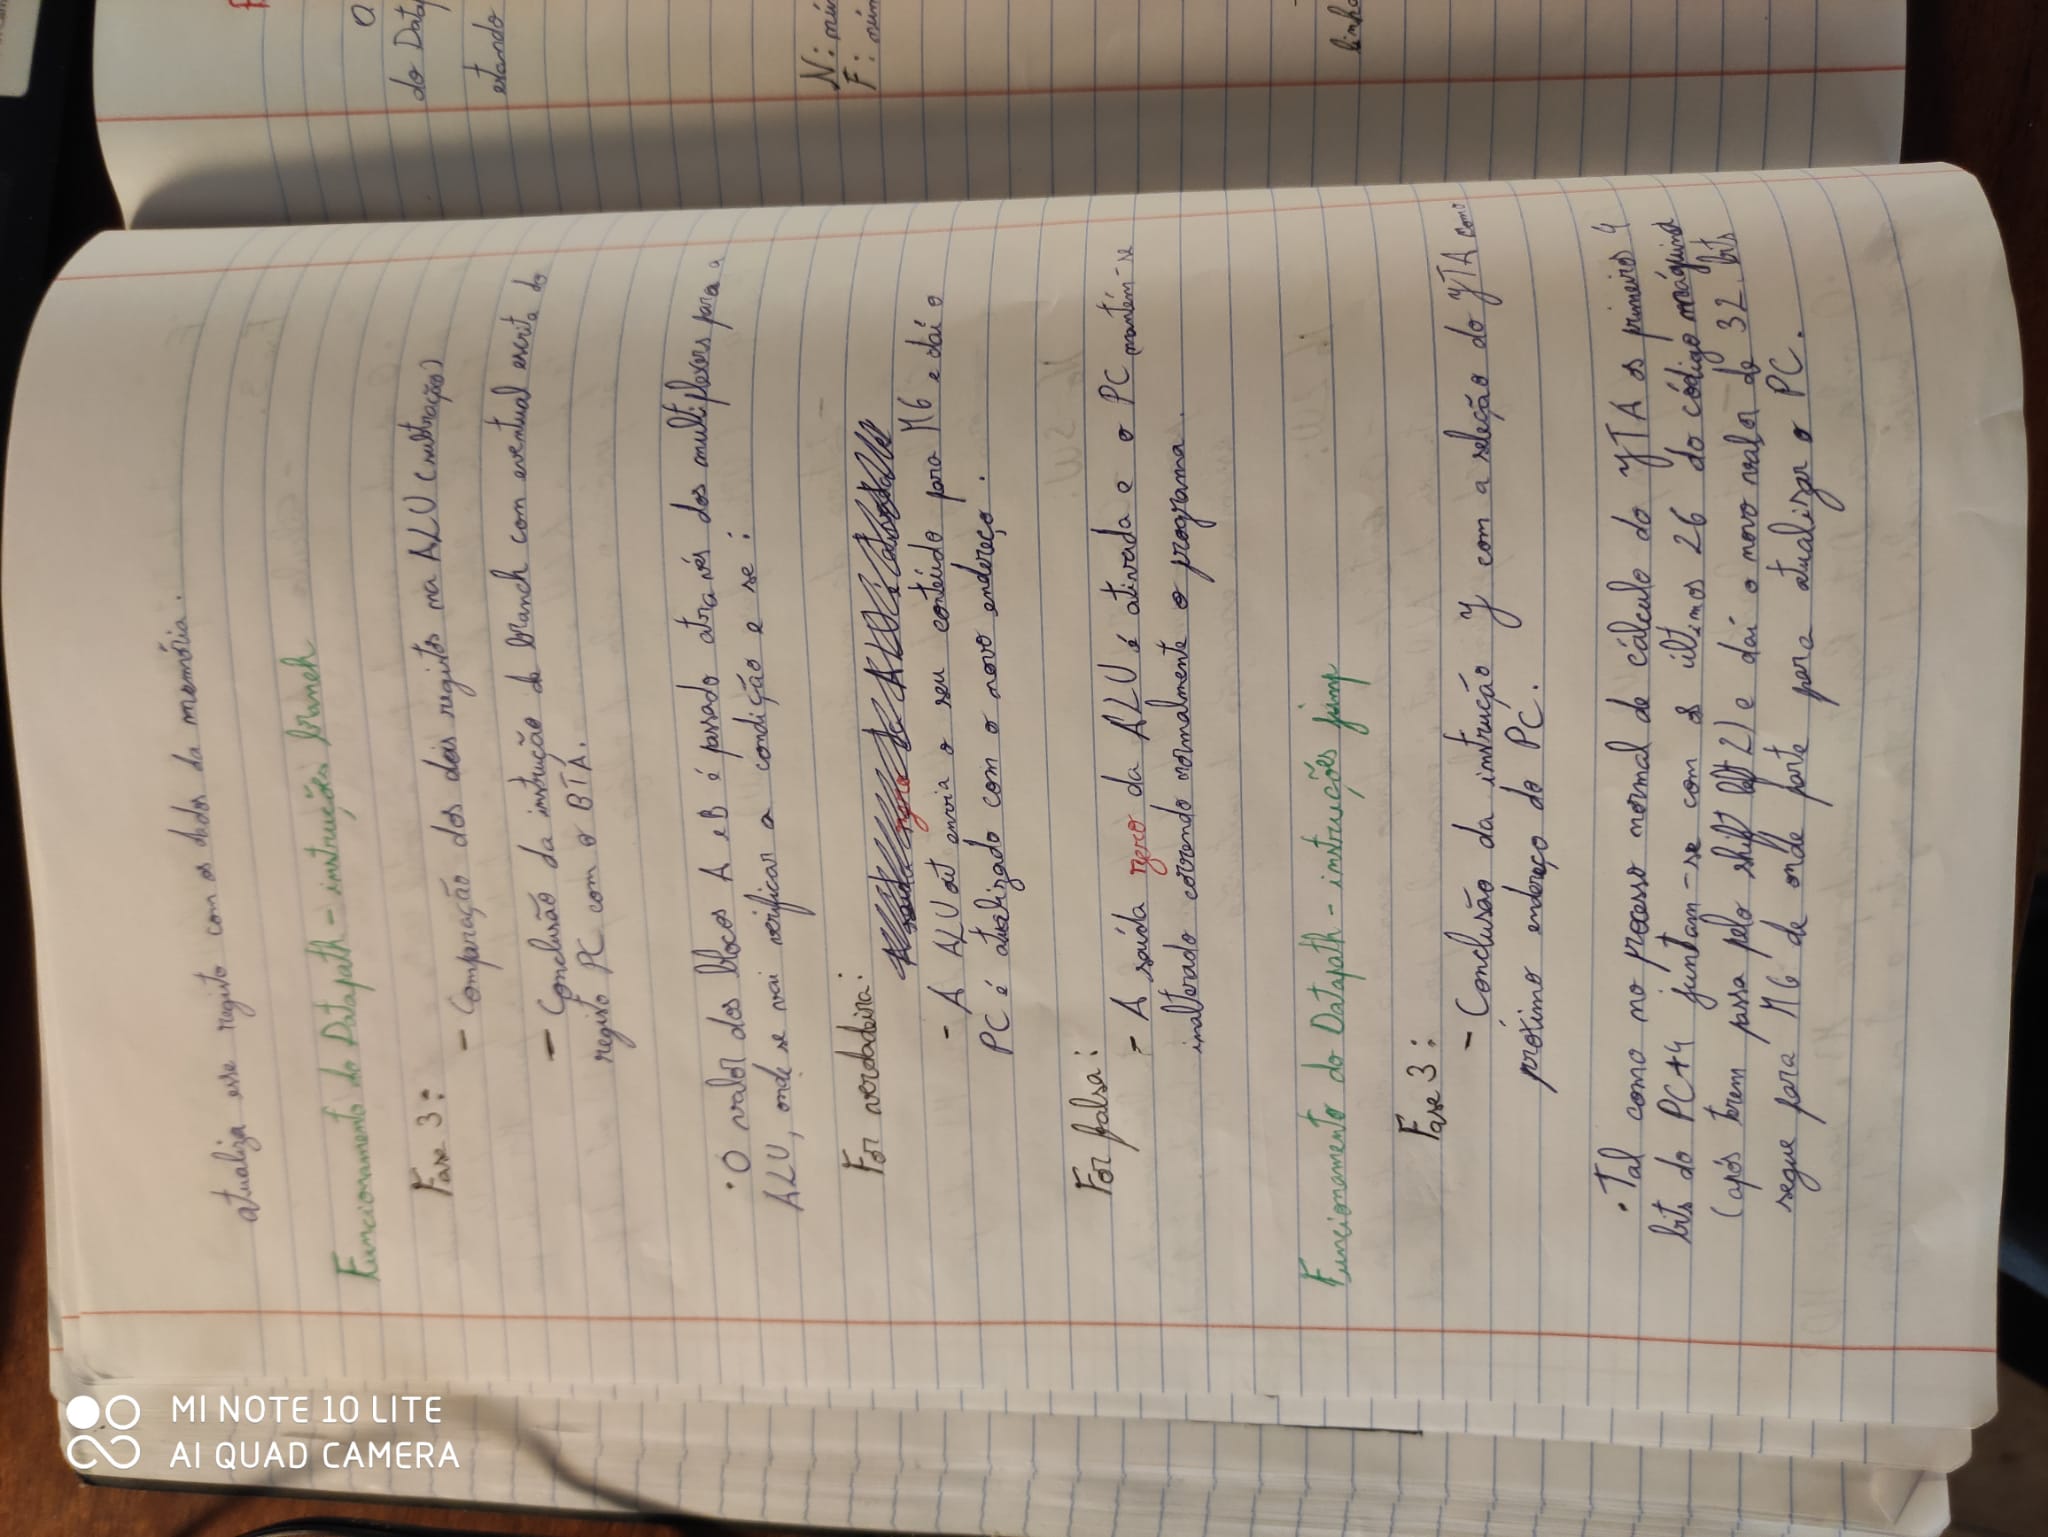 atualiza esse registo com os dados da memória.
Funcionamento do Datapath - instruções branch
Fase 3:
- Comparação dos dois registos na ALU (subtração)
- Conclusão da instrução de branch com eventual escrita do
registo PC com o BTA.
• O valor dos blocos A e B é passado através dos multiplexers para a
ALU, onde se vai verificar a condição e se:
For verdadeira:
- A ALU out envia o seu conteúdo para M6 e daí o
PC é atualizado com o novo endereço.
For falsa:
- A saída zero da ALU é ativada e o PC mantém-se
inalterado correndo normalmente o programa.
Funcionamento do Datapath - instruções jump
Fase 3:
- Conclusão da instrução J com a seleção do JTA como
próximo endereço do PC.
• Tal como no processo normal de cálculo do JTA os primeiros 4
bits do PC+4 juntam-se com os últimos 26 do código máquina
(após terem passa pelo shift left 2) e daí o novo valor de 32 bits
segue para M6 de onde parte para atualizar o PC.
O
do Datap
estando
N: núm
F: núm
linha
MI NOTE 10 LITE
AI QUAD CAMERA